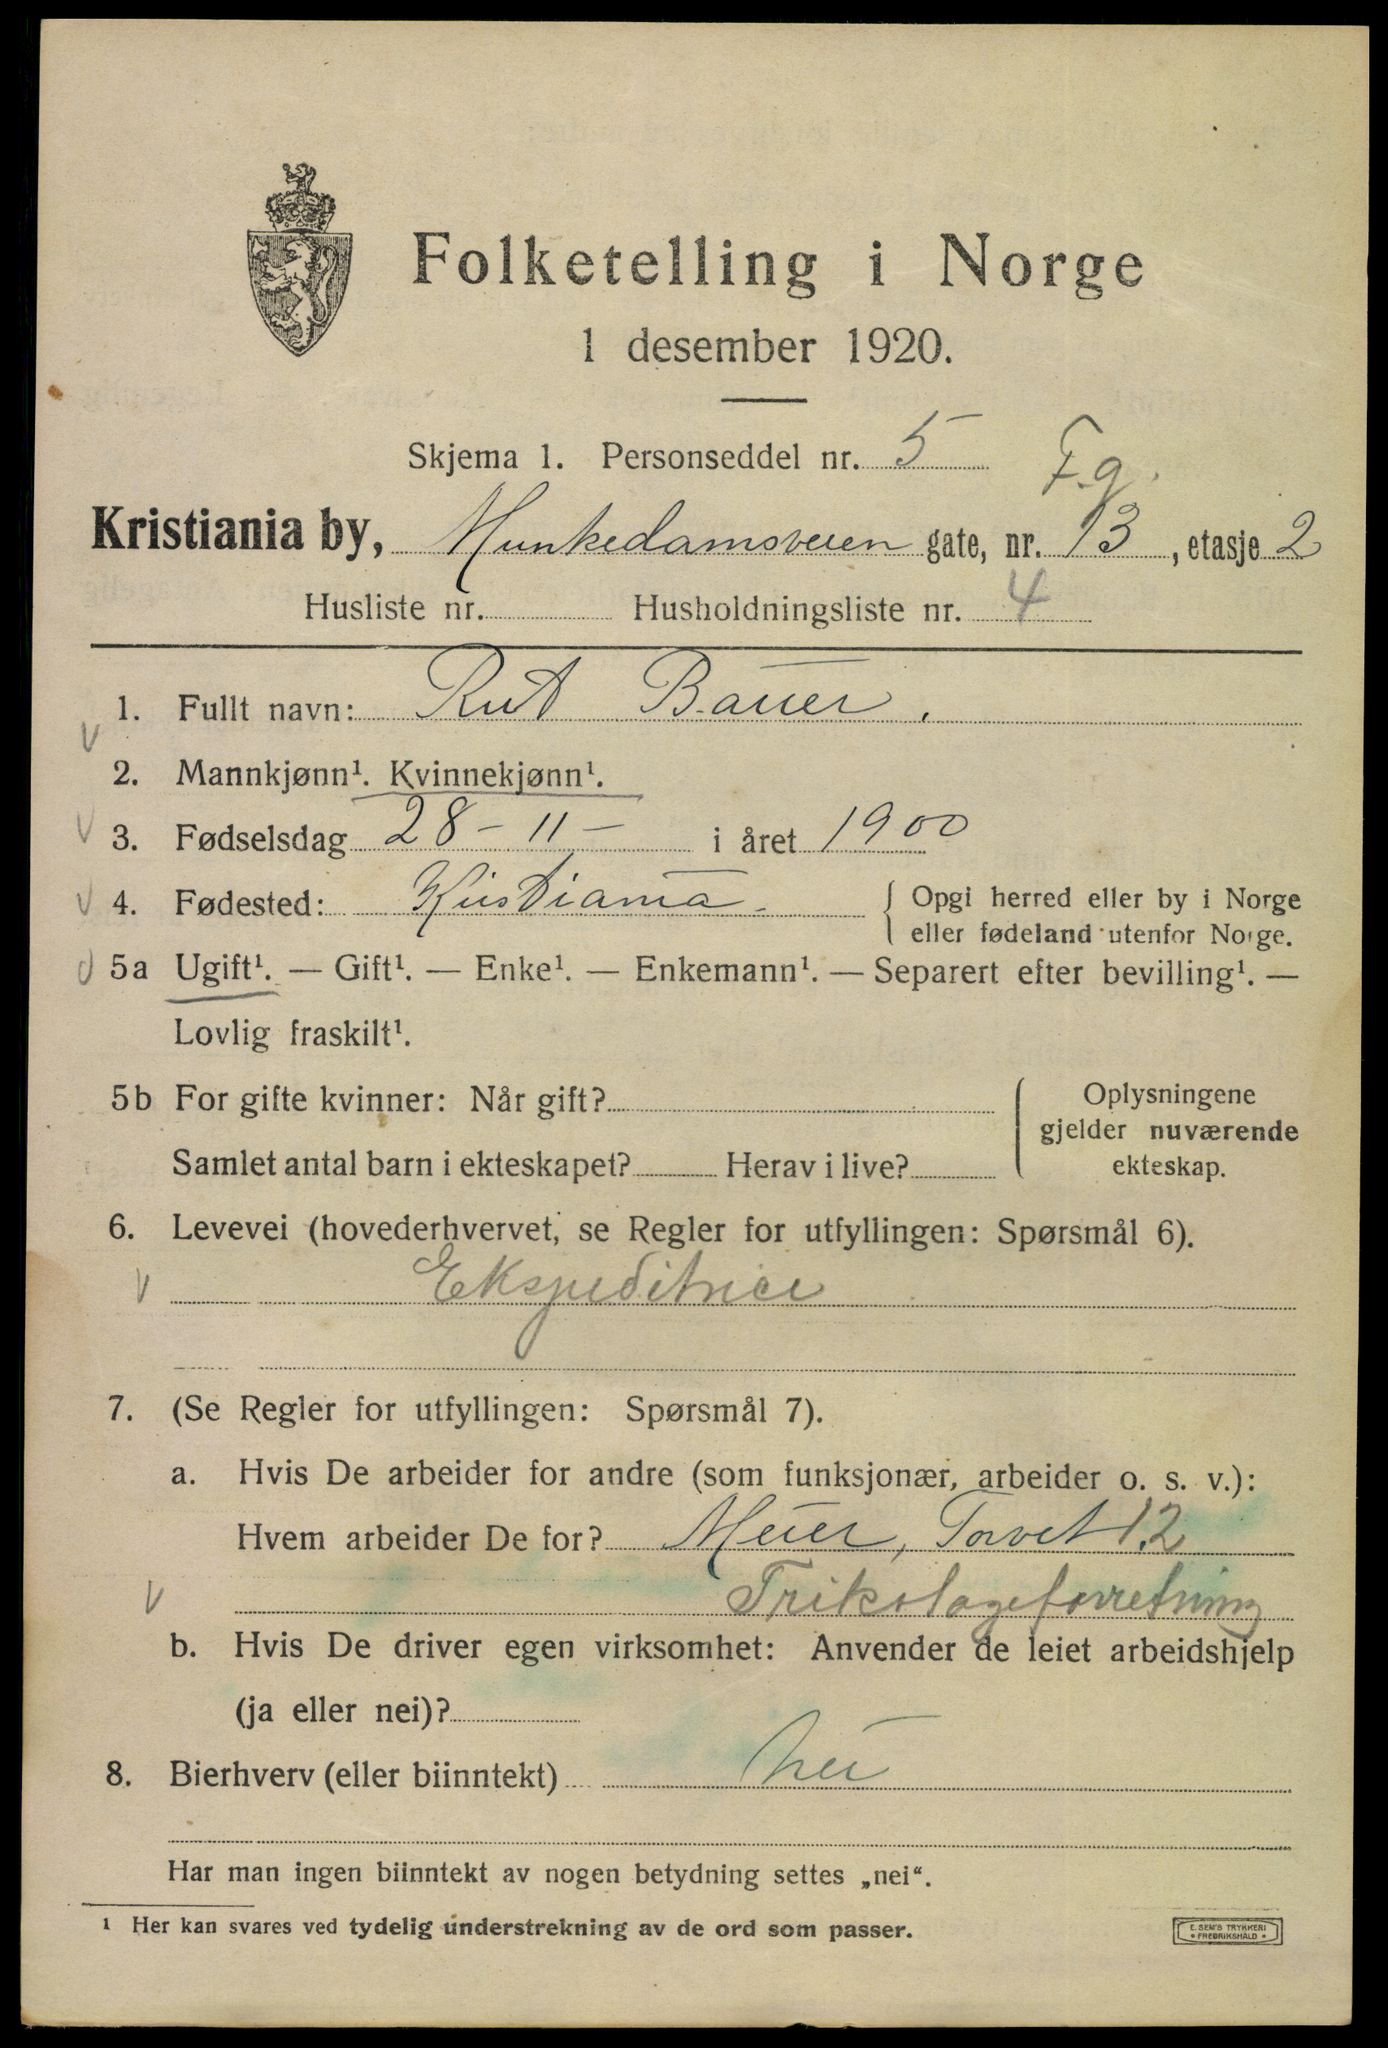 Folketelling i Norge
1 desember 1920.
Skjema 1. Personseddel nr. 5
F.g.
Kristiania by, Munkedamsveien gate, nr. 13, etasje 2
Husliste nr. Husholdningsliste nr. 4
1. Fullt navn: Rut Bauer.
2. Mannkjønn¹. Kvinnekjønn¹.
3. Fødselsdag 28 - 11 - i året 1900
4. Fødested: Kristiania. { Opgi herred eller by i Norge
eller fødeland utenfor Norge.
5a Ugift¹. — Gift¹. — Enke¹. — Enkemann¹. — Separert efter bevilling¹. —
Lovlig fraskilt¹.
5b For gifte kvinner: Når gift?
Samlet antal barn i ekteskapet? Herav i live?
Oplysningene
gjelder nuværende
ekteskap.
6. Levevei (hovederhvervet, se Regler for utfyllingen: Spørsmål 6).
Ekspeditrice
7. (Se Regler for utfyllingen: Spørsmål 7).
a. Hvis De arbeider for andre (som funksjonær, arbeider o. s. v.):
Hvem arbeider De for? Meier, Torvet 12
Trikotageforretning
b. Hvis De driver egen virksomhet: Anvender de leiet arbeidshjelp
(ja eller nei)?
8. Bierhverv (eller biinntekt) nei
Har man ingen biinntekt av nogen betydning settes „nei“.
¹ Her kan svares ved tydelig understrekning av de ord som passer.
E. SEM'S TRYKKERI
• FREDRIKSHALD •